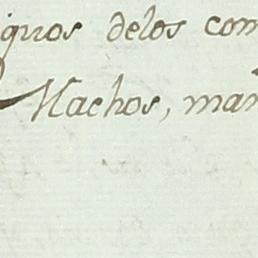 iguos delos com
Machos, man